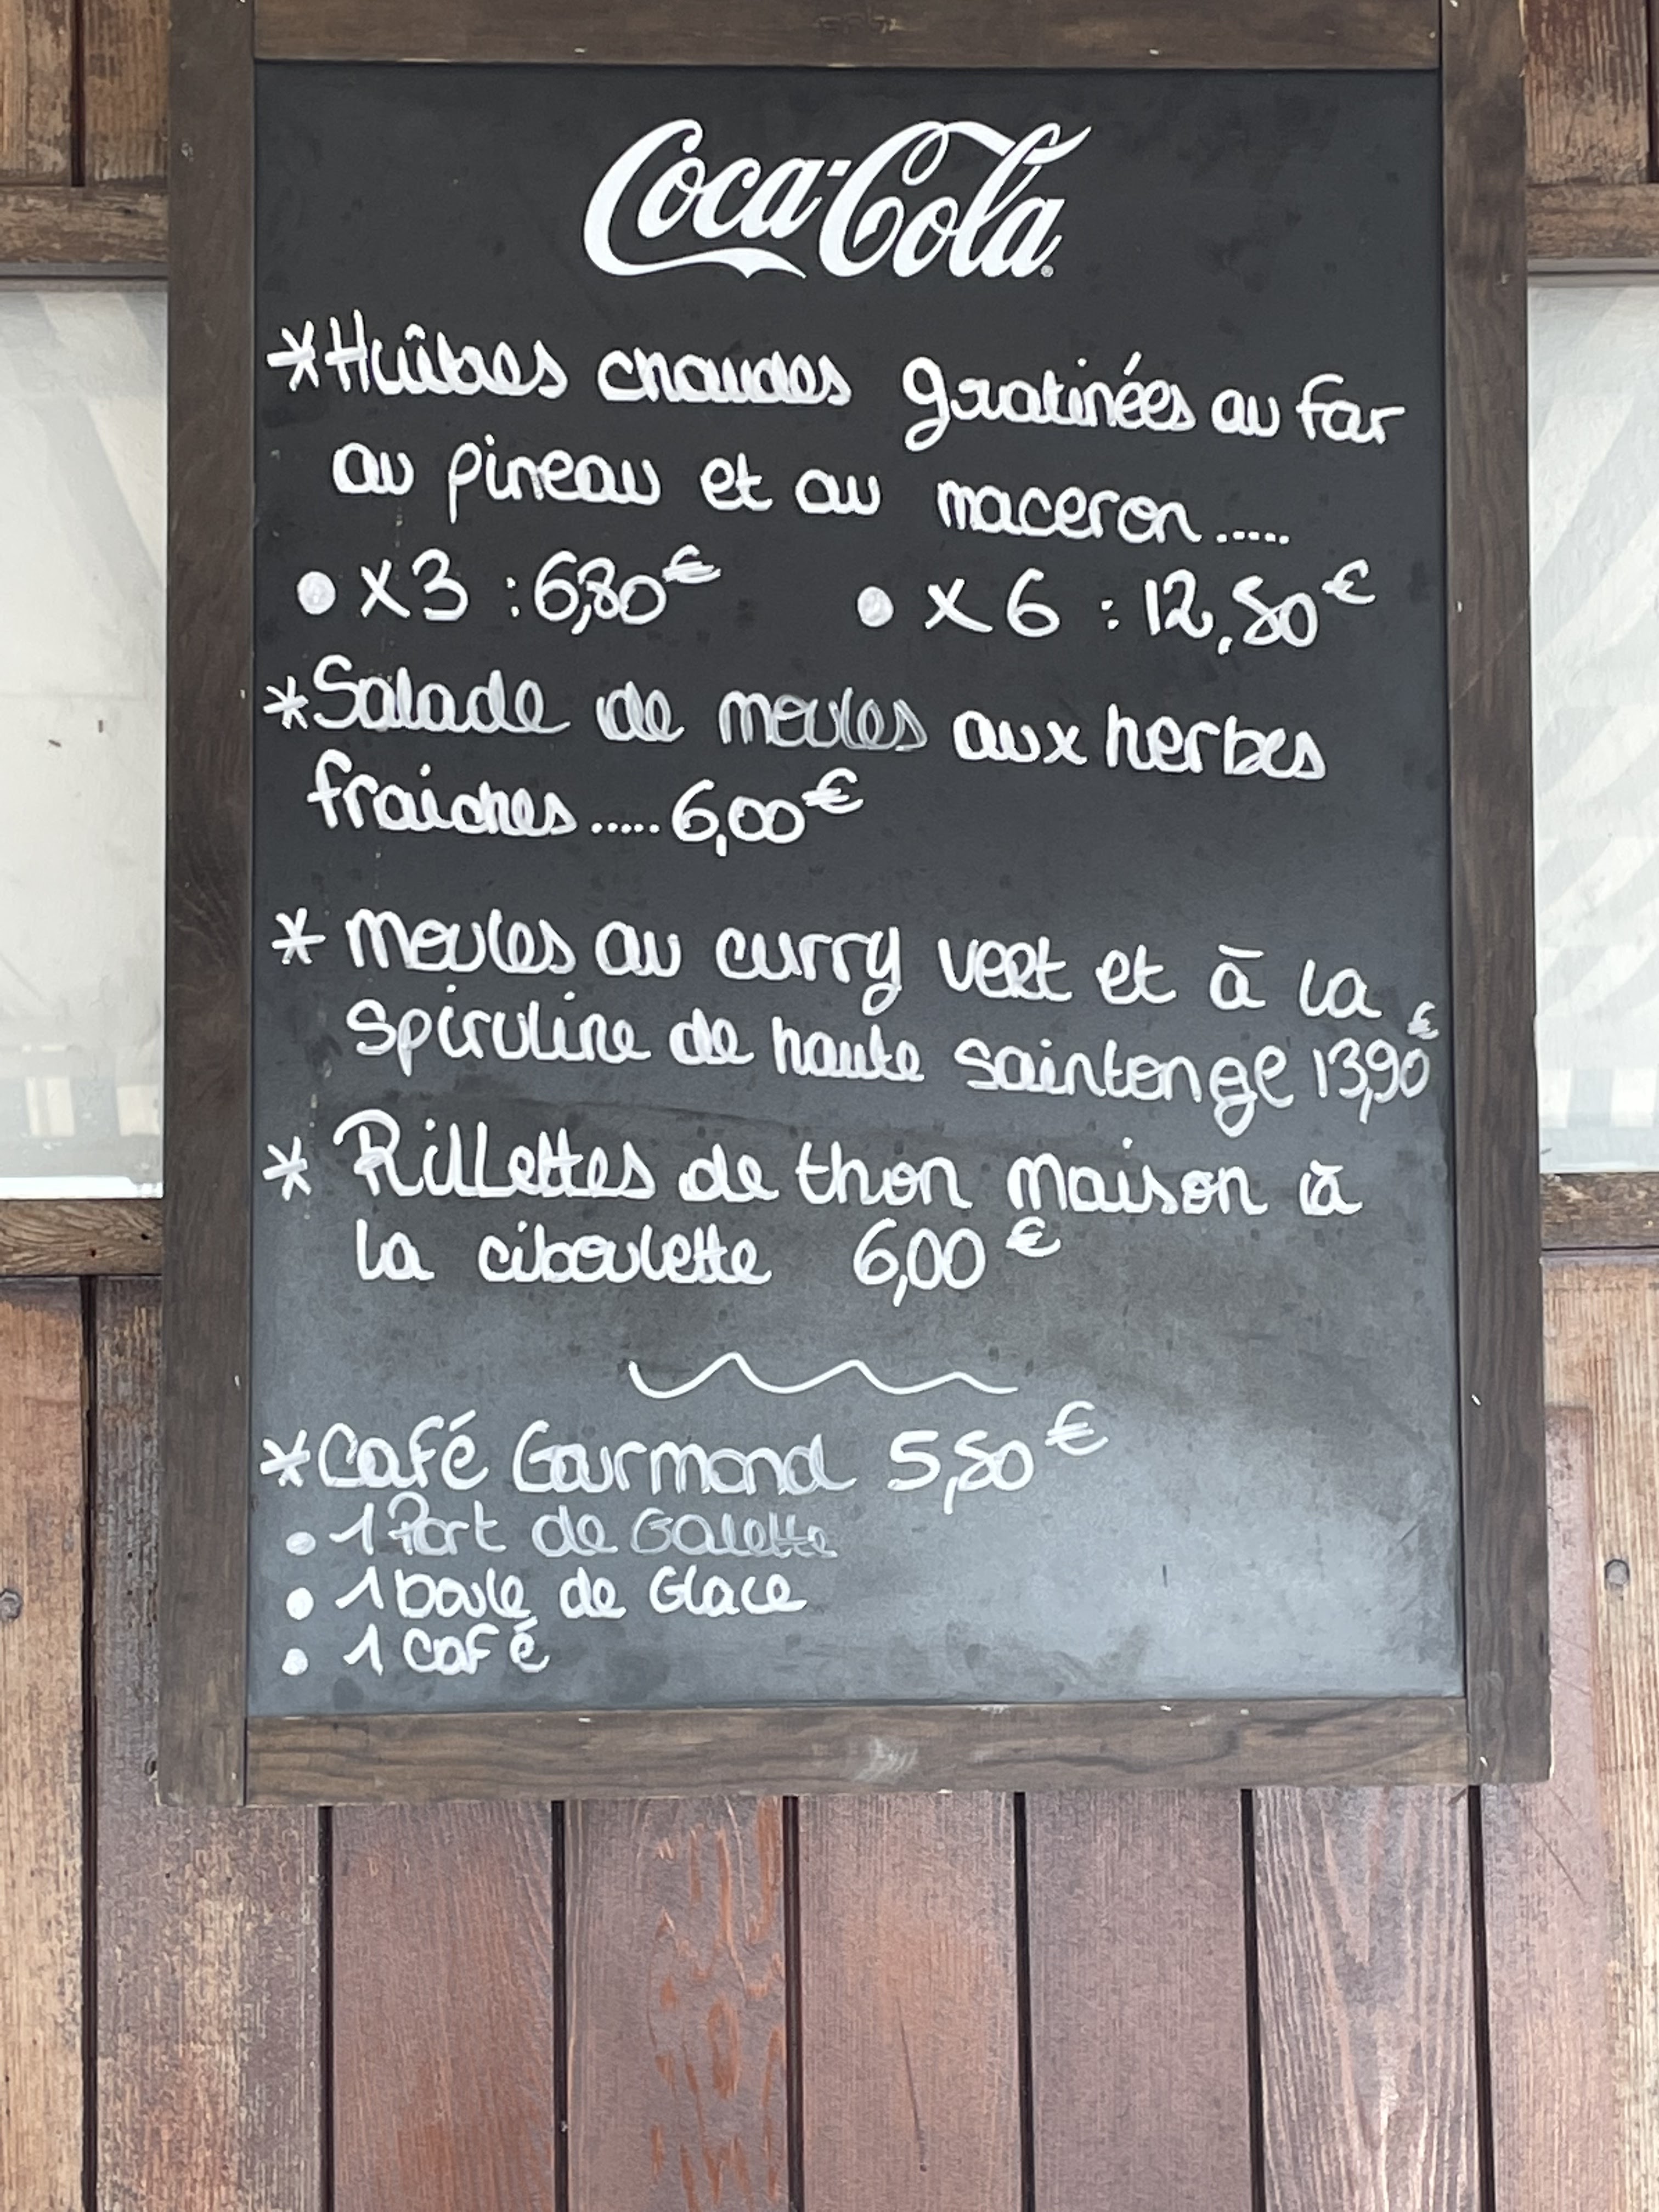 Coca-Cola
*Huîtres chaudes gratinées au far
au pineau et au maceron.....
• x3 : 6,80€ • x6 : 12,50€
*Salade de moules aux herbes
fraiches.....6,00€
* moules au curry vert et à la
spiruline de haute saintonge 13,90€
* Rillettes de thon maison à
la ciboulette 6,00€
*Café Gourmond 5,50€
• 1 Part de Galette
• 1 boule de Glace
• 1 Café